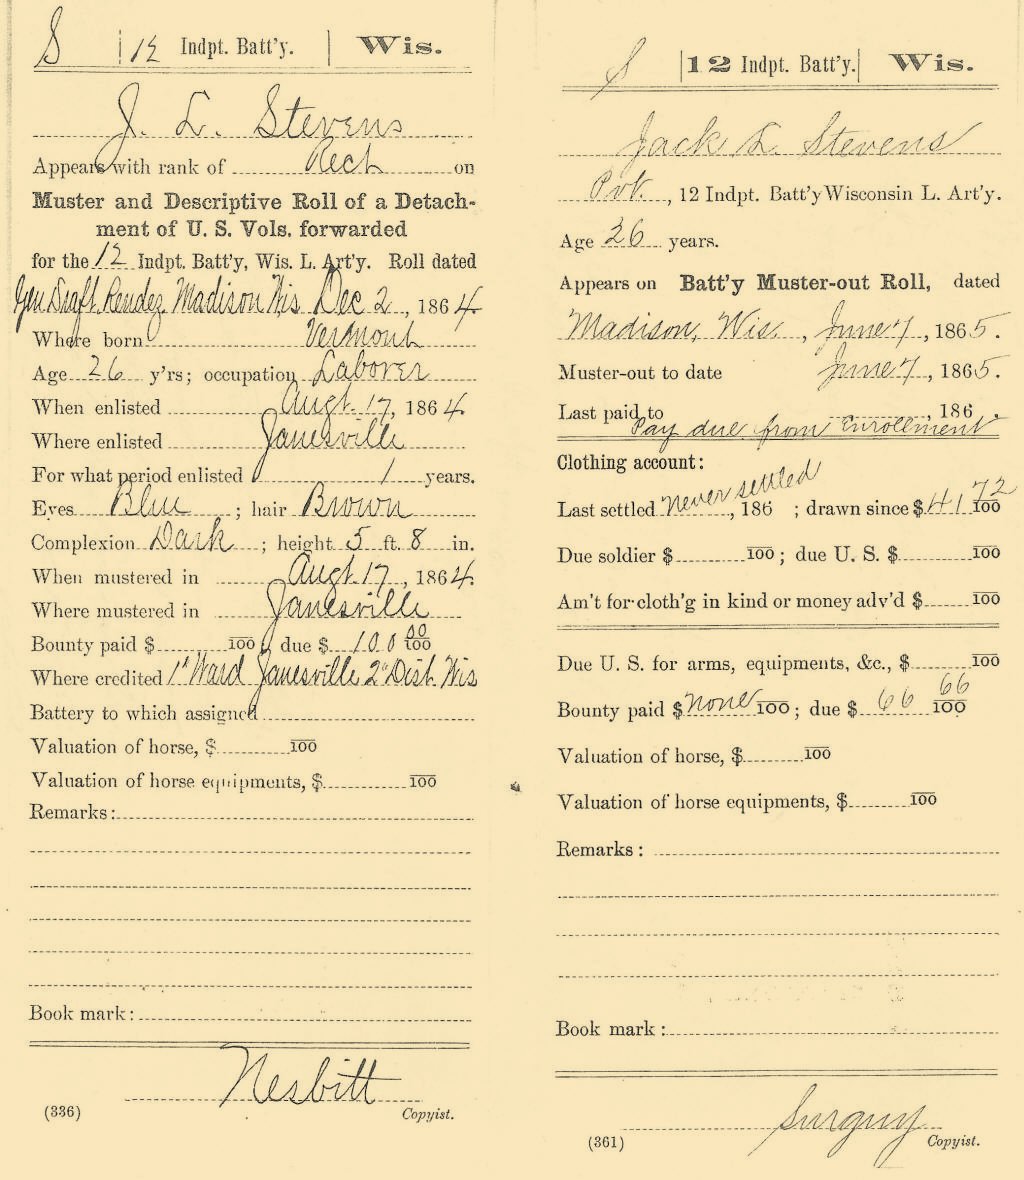 S | 12 Indpt. Batt'y. | Wis.
J. L. Stevens
Appears with rank of Rect on
Muster and Descriptive Roll of a Detach-
ment of U. S. Vols. forwarded
for the 12 Indpt. Batt'y, Wis. L. Art'y. Roll dated
Gen Draft Rendez Madison Wis Dec 2, 1864
Where born Vermont
Age 26 y'rs; occupation Laborer
When enlisted Augt. 17, 1864.
Where enlisted Janesville
For what period enlisted 1 years.
Eyes Blue; hair Brown
Complexion Dark; height 5 ft. 8 in.
When mustered in Augt. 17, 1864.
Where mustered in Janesville
Bounty paid $ 100; due $ 100 00/100
Where credited 1st Ward Janesville 2" Dist. Wis
Battery to which assigned
Valuation of horse, $ 100
Valuation of horse equipments, $ 100
Remarks:
Book mark:
Nesbitt
(336) Copyist.
S | 12 Indpt. Batt'y. | Wis.
Jack L. Stevens
Pvt., 12 Indpt. Batt'y Wisconsin L. Art'y.
Age 26 years.
Appears on Batt'y Muster-out Roll, dated
Madison, Wis., June 7, 1865.
Muster-out to date June 7, 1865.
Last paid to , 186 .
Pay due from Enrollment
Clothing account:
Last settled never settled, 186 ; drawn since $ 41 72/100
Due soldier $ 100; due U. S. $ 100
Am't for cloth'g in kind or money adv'd $ 100
Due U. S. for arms, equipments, &c., $ 100
Bounty paid $ none 100; due $ 66 66/100
Valuation of horse, $ 100
Valuation of horse equipments, $ 100
Remarks:
Book mark:
Surguy
(361) Copyist.